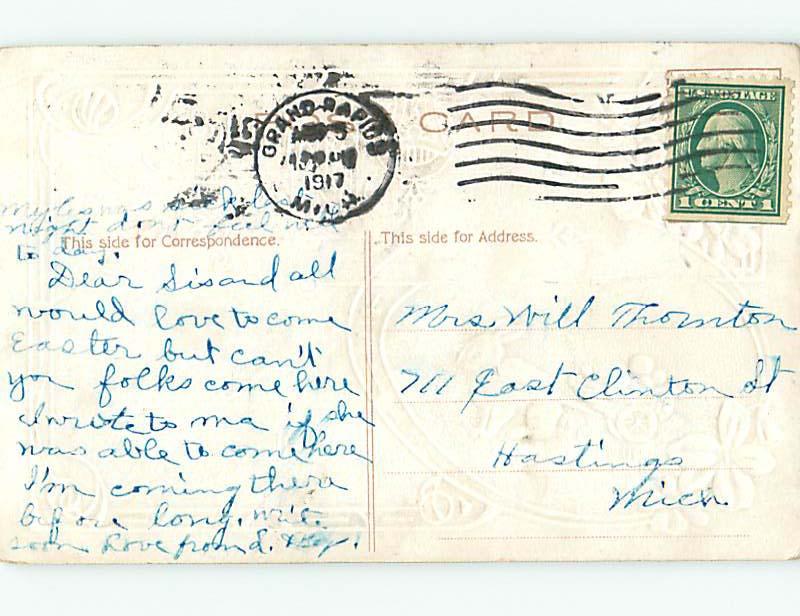 POST CARD
GRAND RAPIDS
1917
MICH.
U.S. POSTAGE
1 CENT 1
My
night don't feel well
to day.
This side for Correspondence.
This side for Address.
Dear Sis and all
would love to come
Easter but can't
you folks come here
I wrote to ma if she
was able to come here
I'm coming there
before long. write
soon Love from
Mrs. Will Thornton
711 East Clinton St
Hastings
Mich.